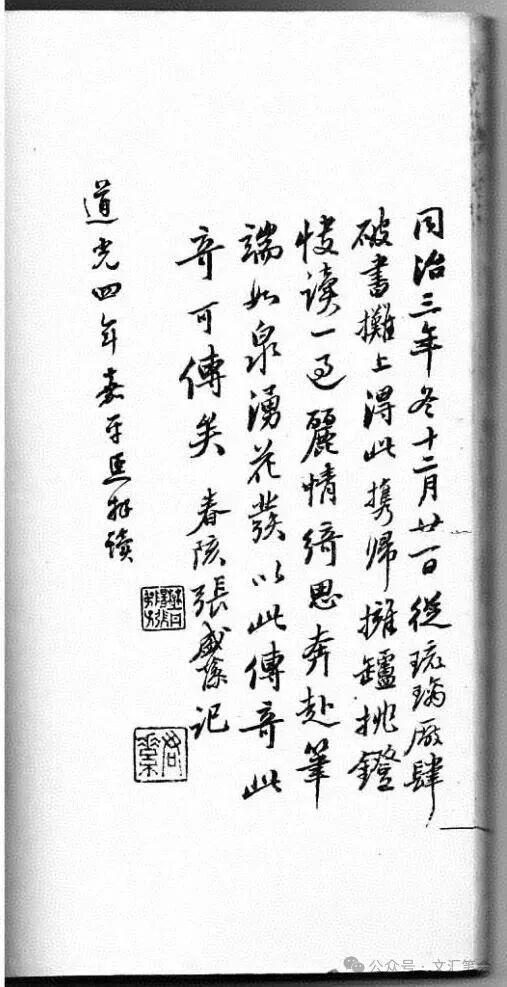 同治三年冬十二月廿一日從琉璃厰肆
破書攤上淂此携歸擁鑪挑鐙
快讀一過麗情綺思奔赴筆
端如泉湧花發以此傳奇此
奇可傳矣 春陔張盛藻記
道光四年嘉平
讀
公众号·文汇笔